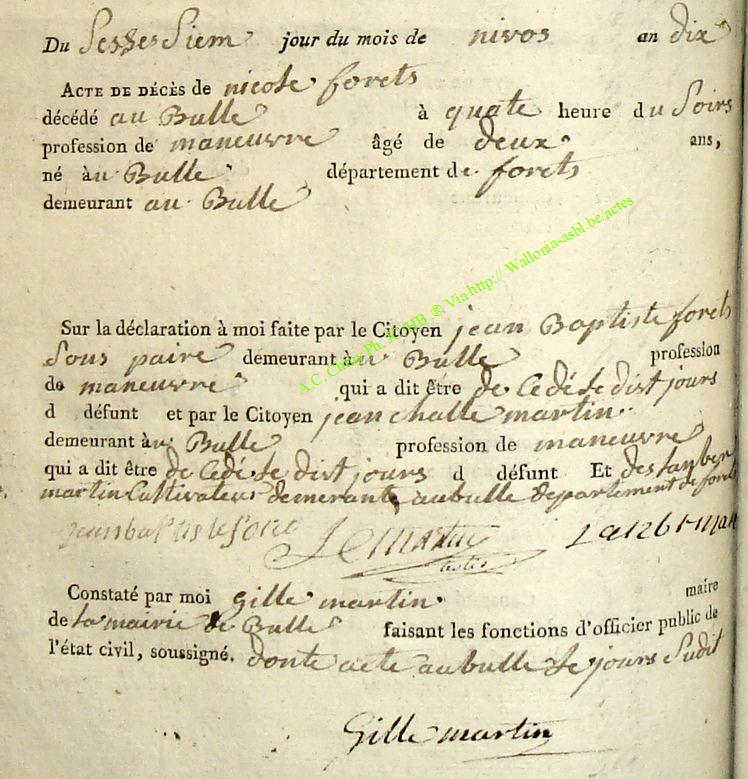 Du Sesses Siem jour du mois de nivos an dix
ACTE DE DÉCÈS de nicole forets
décédé au Bulle à quate heure du Soirs
profession de maneuvre âgé de deux ans,
né àu Bulle département de forets
demeurant au Bulle
Sur la déclaration à moi faite par le Citoyen jean Baptiste forets
Sous paire demeurant àu Bulle profession
de maneuvre qui a dit être de Cedé le dist jours
d défunt et par le Citoyen jean challe martin
demeurant àu Bulle profession de maneuvre
qui a dit être de Cedé le dist jours d défunt Et
martin Cultivateur demerante aubulle departement de forets
Le Martin
testis
Constaté par moi gille martin maire
de la mairie de Bulle faisant les fonctions d'officier public de
l'état civil, soussigné. donte acte aubulle le jours Sudit
Gille martin
A.C. Ph. ® Via http:// Wallonia-asbl.be/actes